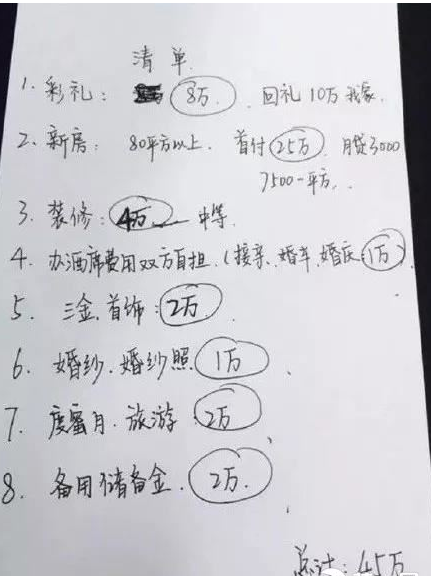 清单
1. 彩礼: 8万. 回礼10万我家.
2. 新房: 80平方以上. 首付25万 月贷3000
7500一平方.
3. 装修: 4万 中等
4. 办酒席费用双方自担.(接亲、婚车、婚庆1万)
5. 三金.首饰: 2万
6. 婚纱.婚纱照 1万
7. 度蜜月.旅游 2万
8. 备用储备金. 2万.
总计: 45万